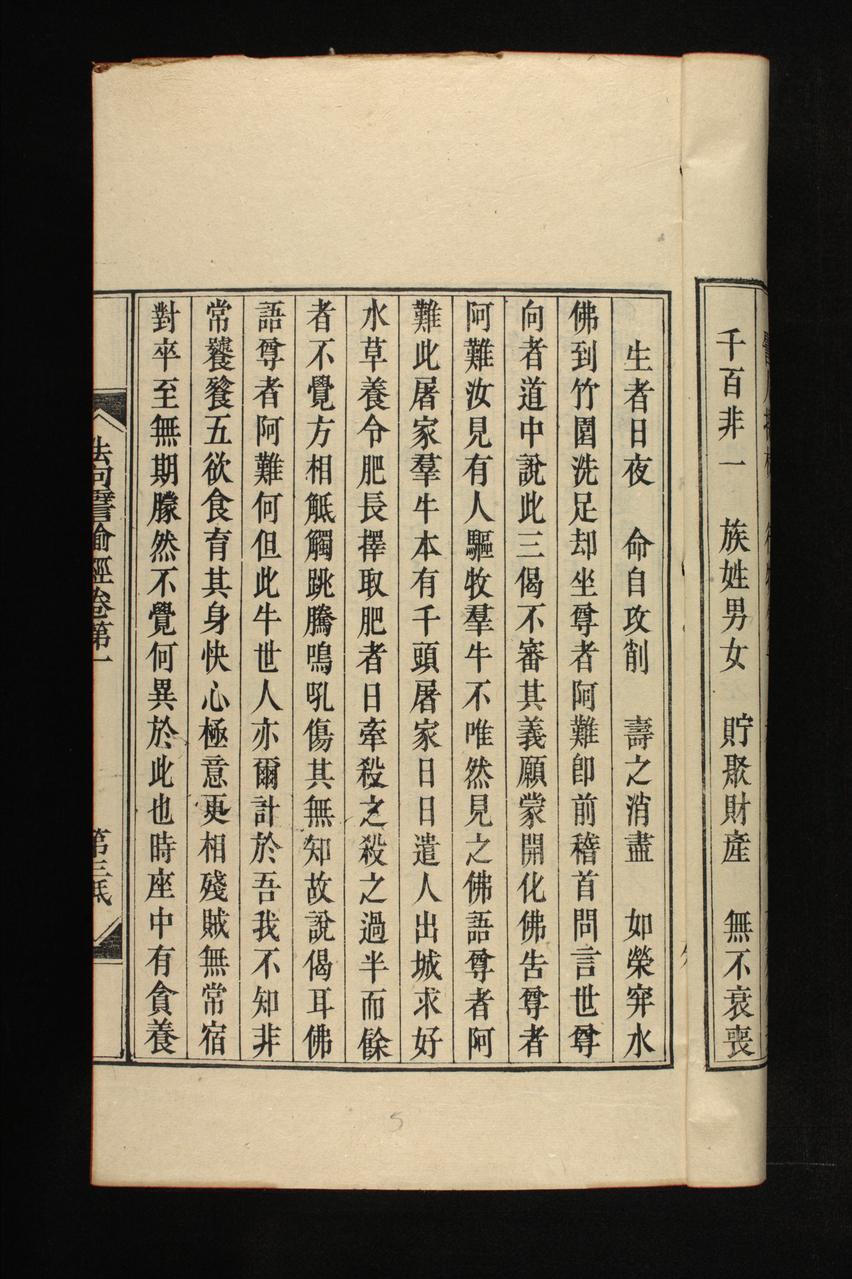 千百非一　族姓男女　貯聚財產　無不衰喪
生者日夜　命自攻削　壽之消盡　如榮穽水
佛到竹園洗足却坐尊者阿難卽前稽首問言世尊
向者道中說此三偈不審其義願蒙開化佛告尊者
阿難汝見有人驅牧羣牛不唯然見之佛語尊者阿
難此屠家羣牛本有千頭屠家日日遣人出城求好
水草養令肥長擇取肥者日牽殺之殺之過半而餘
者不覺方相觝觸跳騰鳴吼傷其無知故說偈耳佛
語尊者阿難何但此牛世人亦爾計於吾我不知非
常饕餮五欲食育其身快心極意更相殘賊無常宿
對卒至無期朦然不覺何異於此也時座中有貪養
法句譬喻經卷第一　第三紙
5